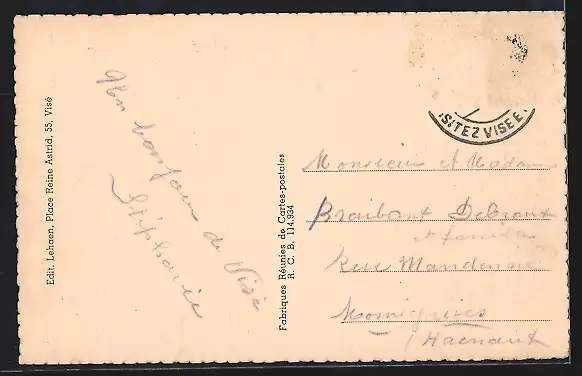 Edit. Lehaen, Place Reine Astrid, 55, Visé
Un bonjour de Visé
Stéphanie
Fabriques Réunies de Cartes-postales
R. C. B. 114.934
ISITEZ VISE E
Monsieur et Madame
Braibant Debraut
et famille
Rue Mandenne
Momignies
(Hainaut